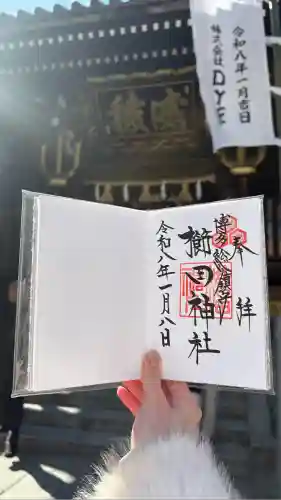 令和八年一月吉日
株式会社DYE
奉拝
博多総鎮守
櫛田神社
令和八年一月八日